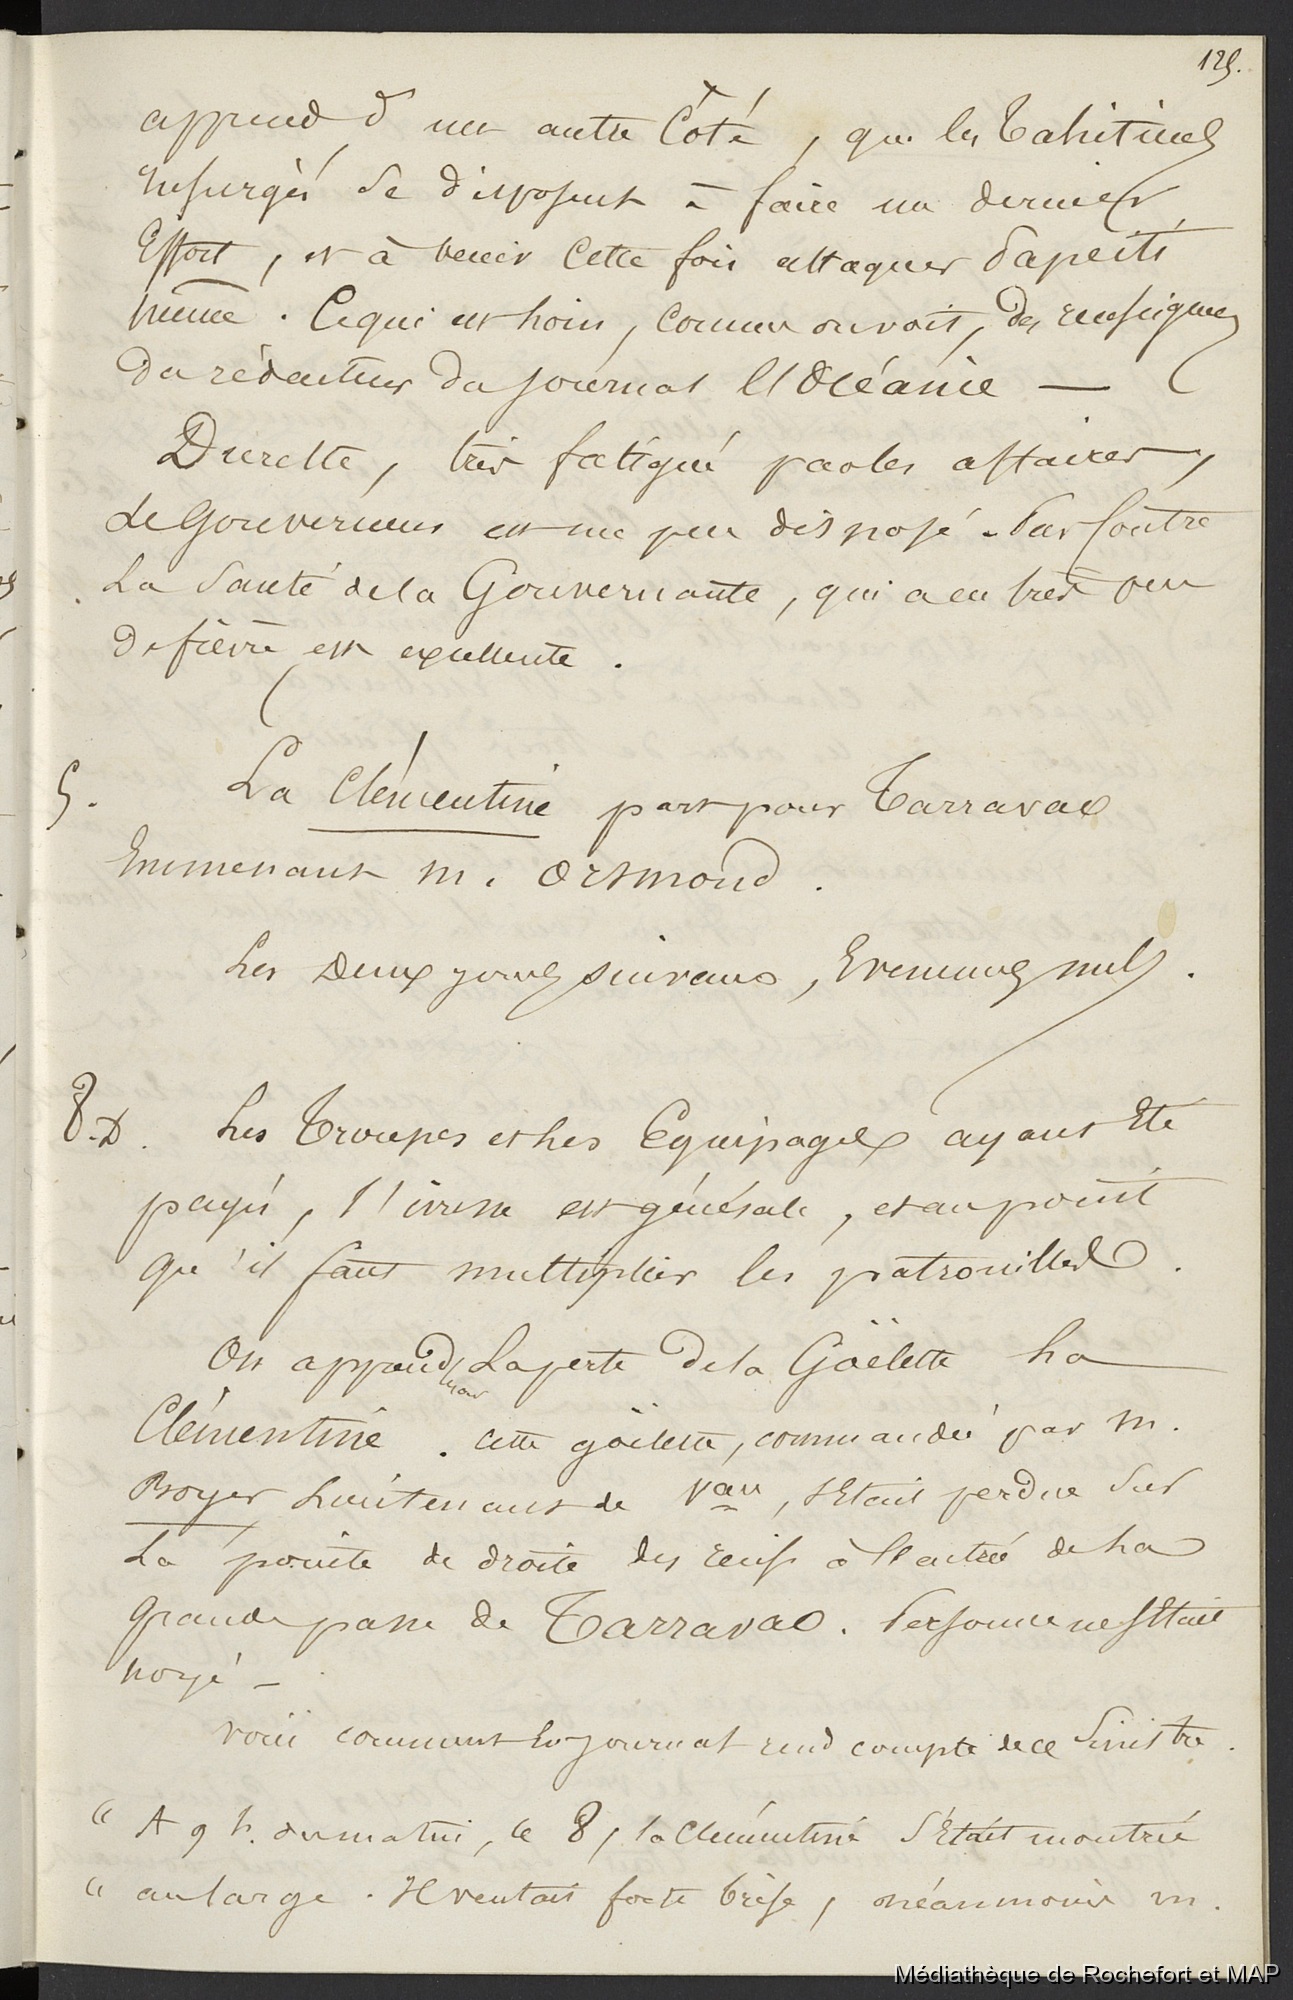 125.
apprend d'un autre Côté, que les Tahitiens
insurgés se disposent à faire un dernier
Effort, et à venir cette fois attaquer Papeïti
même. Ce qui est loin, comme on voit, des renseignem
du rédacteur du journal l'Océanie —
Du reste, très fatigué par les affaires,
le Gouverneur est un peu disposé. Par Contre
La Santé de la Gouvernante, qui a eu très peu
de fièvre est excellente.
5. La Clémentine part pour Tarravao
Emmenant M. Orsmond.
Les Deux jours suivans, Evenemens nuls.
8. D. Les Troupes et les Equipages ayant Eté
payés, l'ivresse est générale, et au point
qu'il faut multiplier les patrouilles.
On apprend La perte de la Goëlette La
Clémentine. Cette goëlette, commandée par M.
Royer Lieutenant de Vau, s'Etait perdue Sur
La pointe de droite des recifs à l'entrée de La
Grande passe de Tarravao. Personne ne s'Etait
noyé —
voici comment le journal rend compte de ce Sinistre.
" A 9 h. du matin, le 8, la Clémentine s'Etait montrée
" au large. Il ventait forte brise, néanmoins M.
Médiathèque de Rochefort et MAP